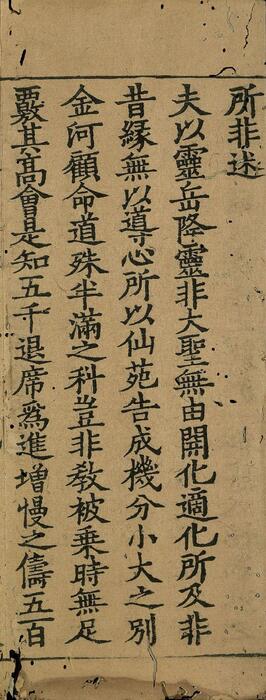 所非述
夫以靈岳降靈非大聖無由開化適化所及非
昔緣無以導心所以仙苑告成機分小大之別
金河顧命道殊半滿之科豈非教被乘時無足
覈其高會是知五千退席為進增慢之儔五百